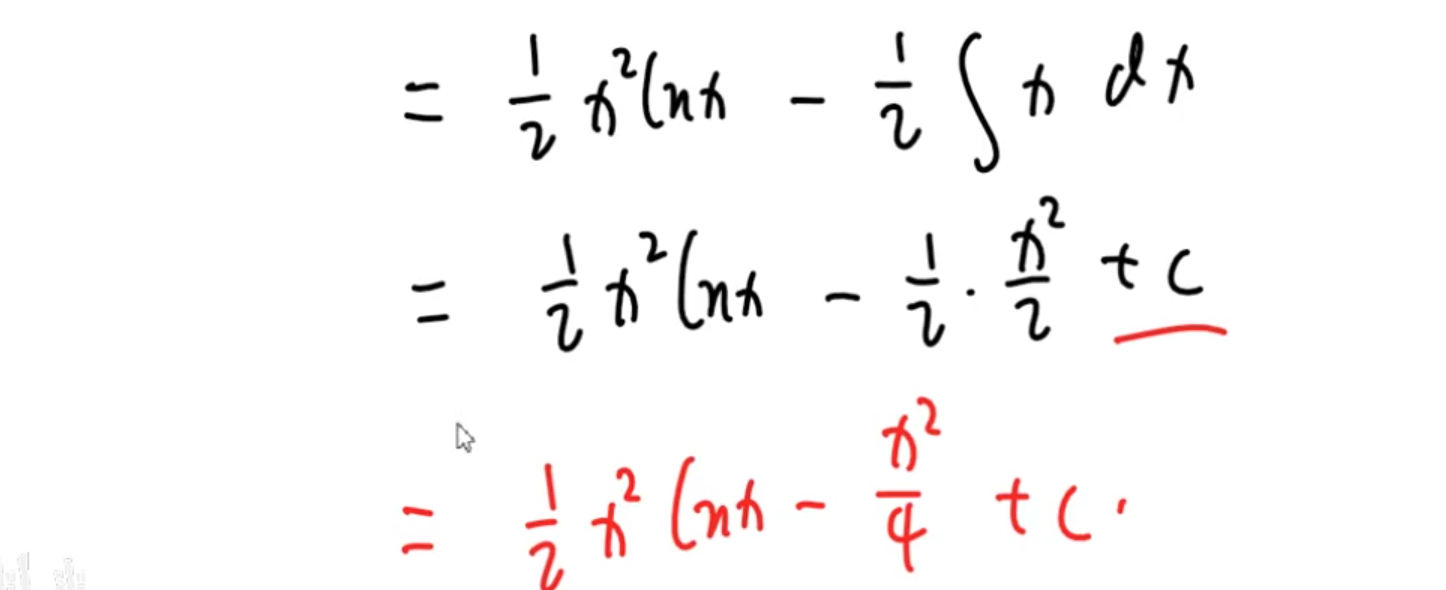 = 1/2 x² ln x - 1/2 ∫ x dx
= 1/2 x² ln x - 1/2 · x²/2 + c
= 1/2 x² ln x - x²/4 + c.